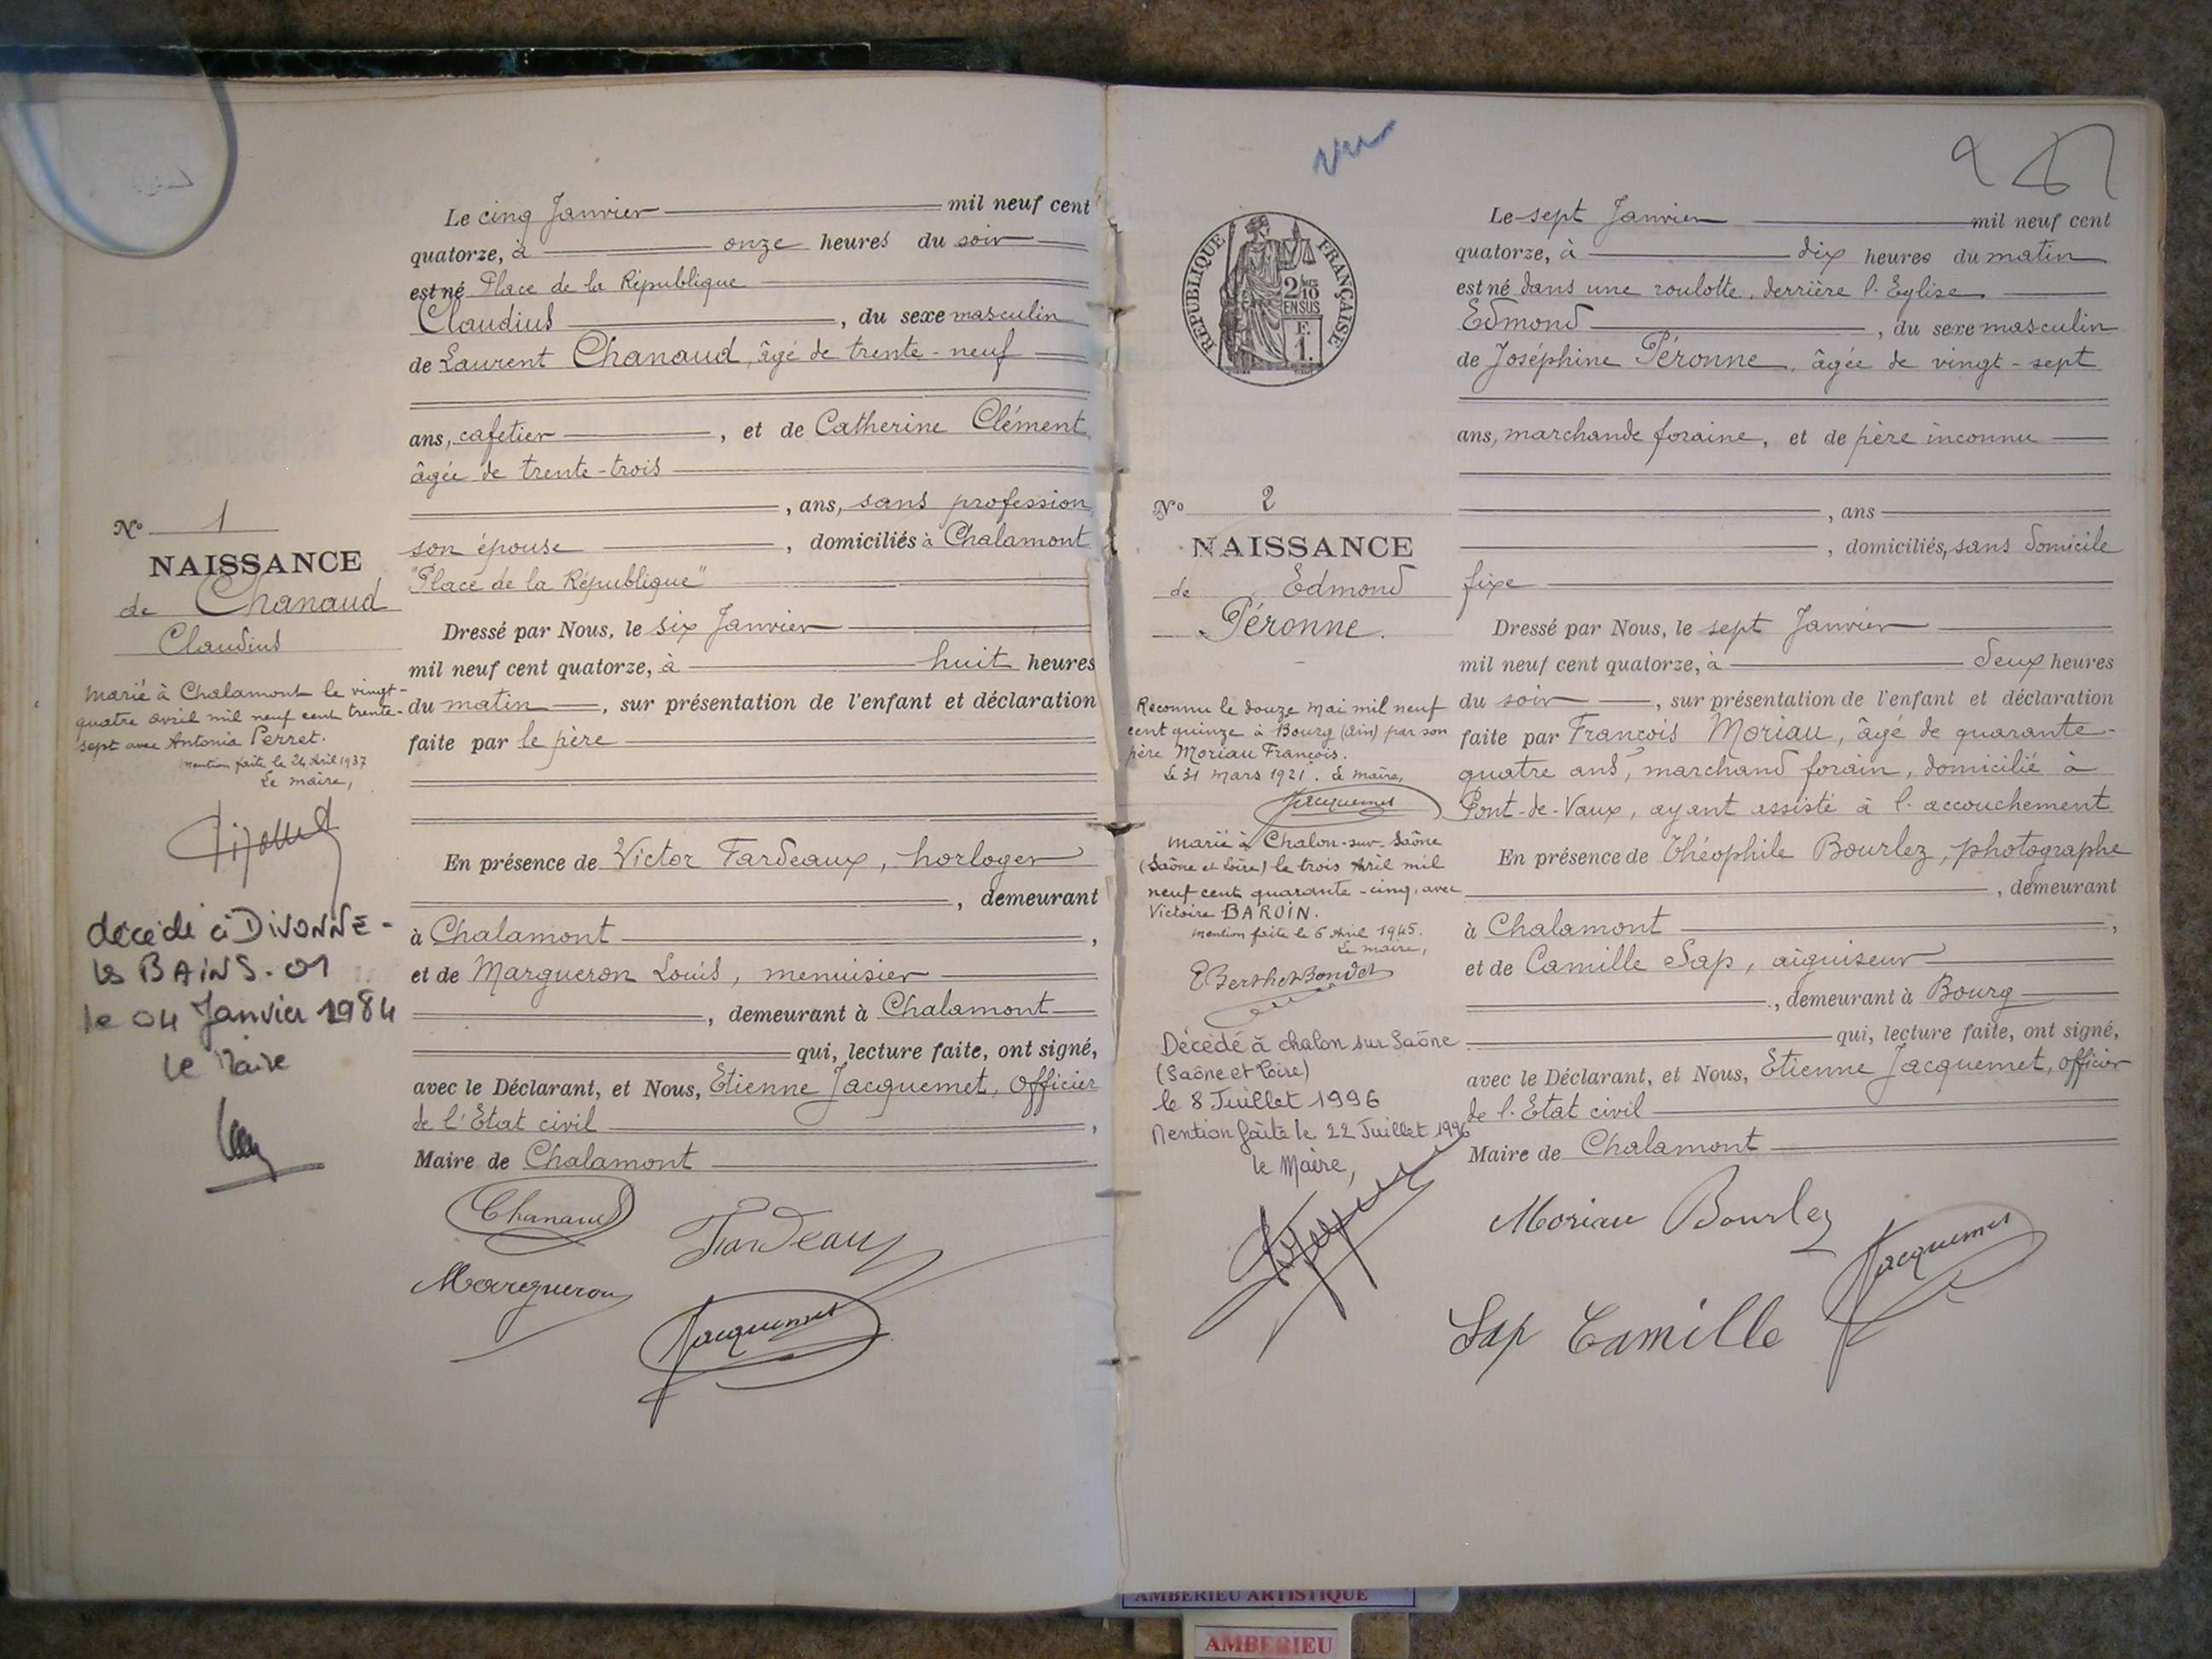 Le cinq Janvier mil neuf cent
quatorze, à onze heures du soir
est né Place de la République
Claudius, du sexe masculin
de Laurent Chanaud, âgé de trente-neuf
ans, cafetier, et de Catherine Clément,
âgée de trente-trois
, ans, sans profession,
son épouse, domiciliés à Chalamont
"Place de la République"
Dressé par Nous, le six Janvier
mil neuf cent quatorze, à huit heures
du matin, sur présentation de l'enfant et déclaration
faite par le père
En présence de Victor Fardeaux, horloger
, demeurant
à Chalamont,
et de Margueron Louis, menuisier
, demeurant à Chalamont
qui, lecture faite, ont signé,
avec le Déclarant, et Nous, Etienne Jacquemet, Officier
de l'Etat civil,
Maire de Chalamont
Chanaud
Fardeaux
Margueron
Jacquemet
No 1
NAISSANCE
de Chanaud
Claudius
Marié à Chalamont le vingt-
quatre avril mil neuf cent trente-
sept avec Antonia Perret.
Mention faite le 24 Avril 1937
Le maire,
décédé à DIVONNE-
les BAINS-01
le 04 Janvier 1984
le Maire
2
RÉPUBLIQUE FRANÇAISE
2/10
EN SUS
F.
1.
Le sept Janvier mil neuf cent
quatorze, à dix heures du matin
est né dans une roulotte, derrière l'Eglise
Edmond, du sexe masculin
de Joséphine Péronne, âgée de vingt-sept
ans, marchande foraine, et de père inconnu
, ans
, domiciliés, sans domicile
fixe
Dressé par Nous, le sept Janvier
mil neuf cent quatorze, à deux heures
du soir, sur présentation de l'enfant et déclaration
faite par François Moriau, âgé de quarante-
quatre ans, marchand forain, domicilié à
Pont-de-Vaux, ayant assisté à l'accouchement
En présence de Théophile Bourlez, photographe
, demeurant
à Chalamont,
et de Camille Sap, aiguiseur
, demeurant à Bourg
qui, lecture faite, ont signé,
avec le Déclarant, et Nous, Etienne Jacquemet, Officier
de l'Etat civil
Maire de Chalamont
Moriau Bourlez
Jacquemet
Sap Camille
No 2
NAISSANCE
de Edmond
Péronne.
Reconnu le douze Mai mil neuf
cent quinze à Bourg (Ain) par son
père Moriau François.
Le 31 Mars 1921. Le Maire,
Jacquemet
Marié à Chalon-sur-Saône
(Saône et Loire) le trois Avril mil
neuf cent quarante-cinq, avec
Victoire BAROIN.
Mention faite le 6 Avril 1945.
Le maire,
E Berthet Bondet
Décédé à chalon sur Saône
(Saône et Loire)
le 8 Juillet 1996
Mention faite le 22 Juillet 1996
le Maire,
AMBERIEU ARTISTIQUE
AMBERIEU